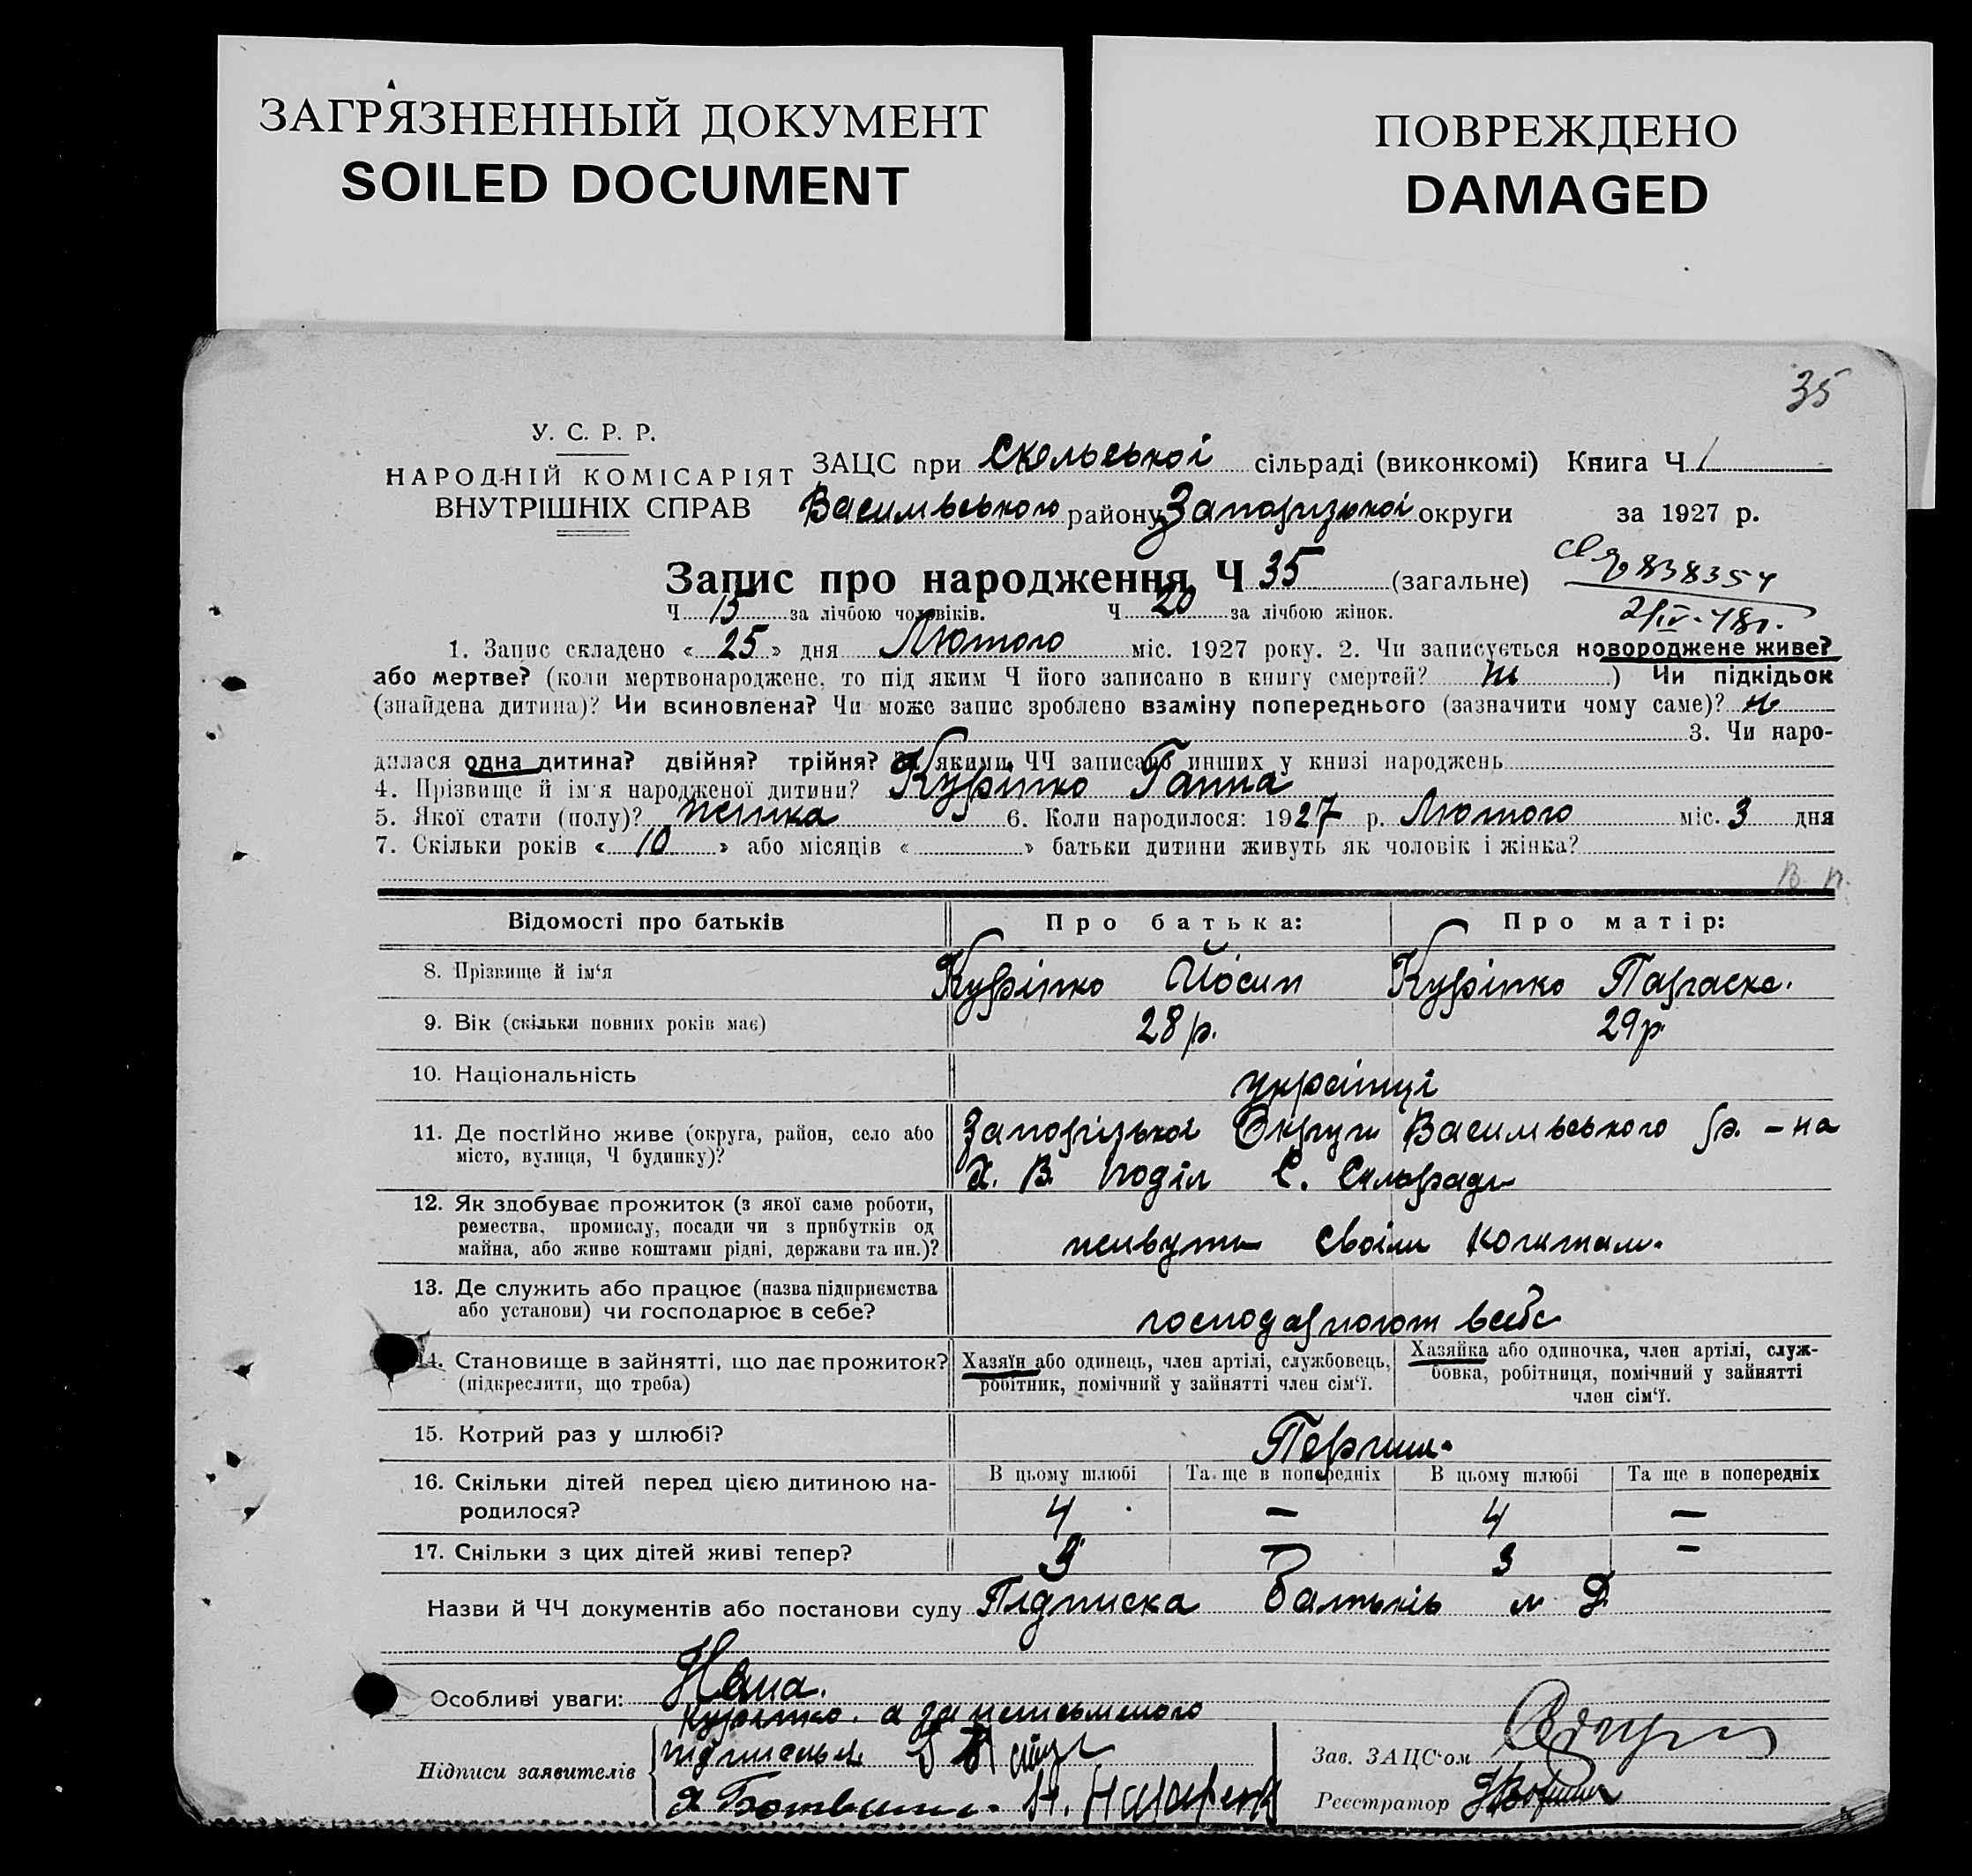 ЗАГРЯЗНЕННЫЙ ДОКУМЕНТ
SOILED DOCUMENT
ПОВРЕЖДЕНО
DAMAGED
35
У. С. Р. Р.
НАРОДНІЙ КОМІСАРІЯТ
ВНУТРІШНІХ СПРАВ
ЗАЦС при Скельської сільраді (виконкомі) Книга Ч 1
Василівського району Запорізької округи за 1927 р.
Запис про народження Ч 35 (загальне)
838354
Ч 15 за лічбою чоловіків. Ч 20 за лічбою жінок.
1. Запис складено « 25 » дня Лютого міс. 1927 року. 2. Чи записується новороджене живе?
або мертве? (коли мертвонароджене, то під яким Ч його записано в книгу смертей? ) Чи підкідьок
(знайдена дитина)? Чи всиновлена? Чи може запис зроблено взаміну попереднього (зазначити чому саме)?
3. Чи наро-
дилася одна дитина? двійня? трійня? За якими ЧЧ записано инших у книзі народжень
4. Прізвище й ім'я народженої дитини? Курітко Ганна
5. Якої стати (полу)? жінка 6. Коли народилося: 1927 р. Лютого міс. 3 дня
7. Скільки років « 10 » або місяців « » батьки дитини живуть як чоловік і жінка?
Відомості про батьків Про батька: Про матір:
8. Прізвище й ім'я Курітко Йосип Курітко Параска.
9. Вік (скільки повних років має) 28 р. 29 р
10. Національність українці
11. Де постійно живе (округа, район, село або
місто, вулиця, Ч будинку)?
Запорізької Округи Василівського р. - на
Х. В. Поділ С. Сільради
12. Як здобуває прожиток (з якої саме роботи,
ремества, промислу, посади чи з прибутків од
майна, або живе коштами рідні, держави та ин.)?
живуть своїми коштами.
13. Де служить або працює (назва підприємства
або установи) чи господарює в себе?
господарюют в себе
14. Становище в зайнятті, що дає прожиток?
(підкреслити, що треба)
Хазяїн або одинець, член артілі, службовець,
робітник, помічний у зайнятті член сім'ї.
Хазяйка або одиночка, член артілі, служ-
бовка, робітниця, помічний у зайнятті
член сім'ї.
15. Котрий раз у шлюбі? Перший.
16. Скільки дітей перед цією дитиною на-
родилося?
В цьому шлюбі Та ще в попередніх В цьому шлюбі Та ще в попередніх
4 — 4 —
17. Скільки з цих дітей живі тепер? 3 — 3 —
Назви й ЧЧ документів або постанови суду Підписка Батьків
Особливі уваги: Нема.
Підписи заявителів
Курітко. а за неписьменого
підписався
Н. Назаренко
Зав. ЗАЦС'ом
Реєстратор